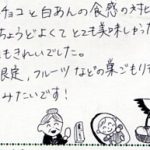 チョコと白あんの食感の対比
ちょうどよくてとても美味しかった
もきれいでした。
限定、フルーツなどの巣ごもりも
みたいです！